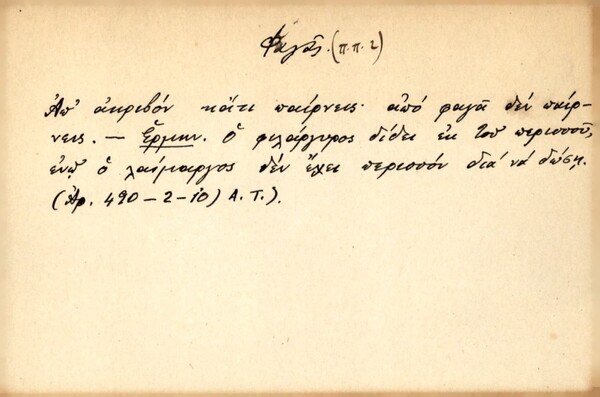 Φαγᾶς. (π.π. 2)
Ἀπ' ἀκριβόν κάτι παίρνεις· ἀπό φαγᾶ δέν παίρ-
νεις. — Ἑρμην. Ὁ φιλάργυρος δίδει ἐκ τοῦ περισσοῦ,
ἐνῷ ὁ λαίμαργος δέν ἔχει περισσόν διά νά δώσῃ.
(Ἀρ. 490 – 2 – 10) Α. Τ.).